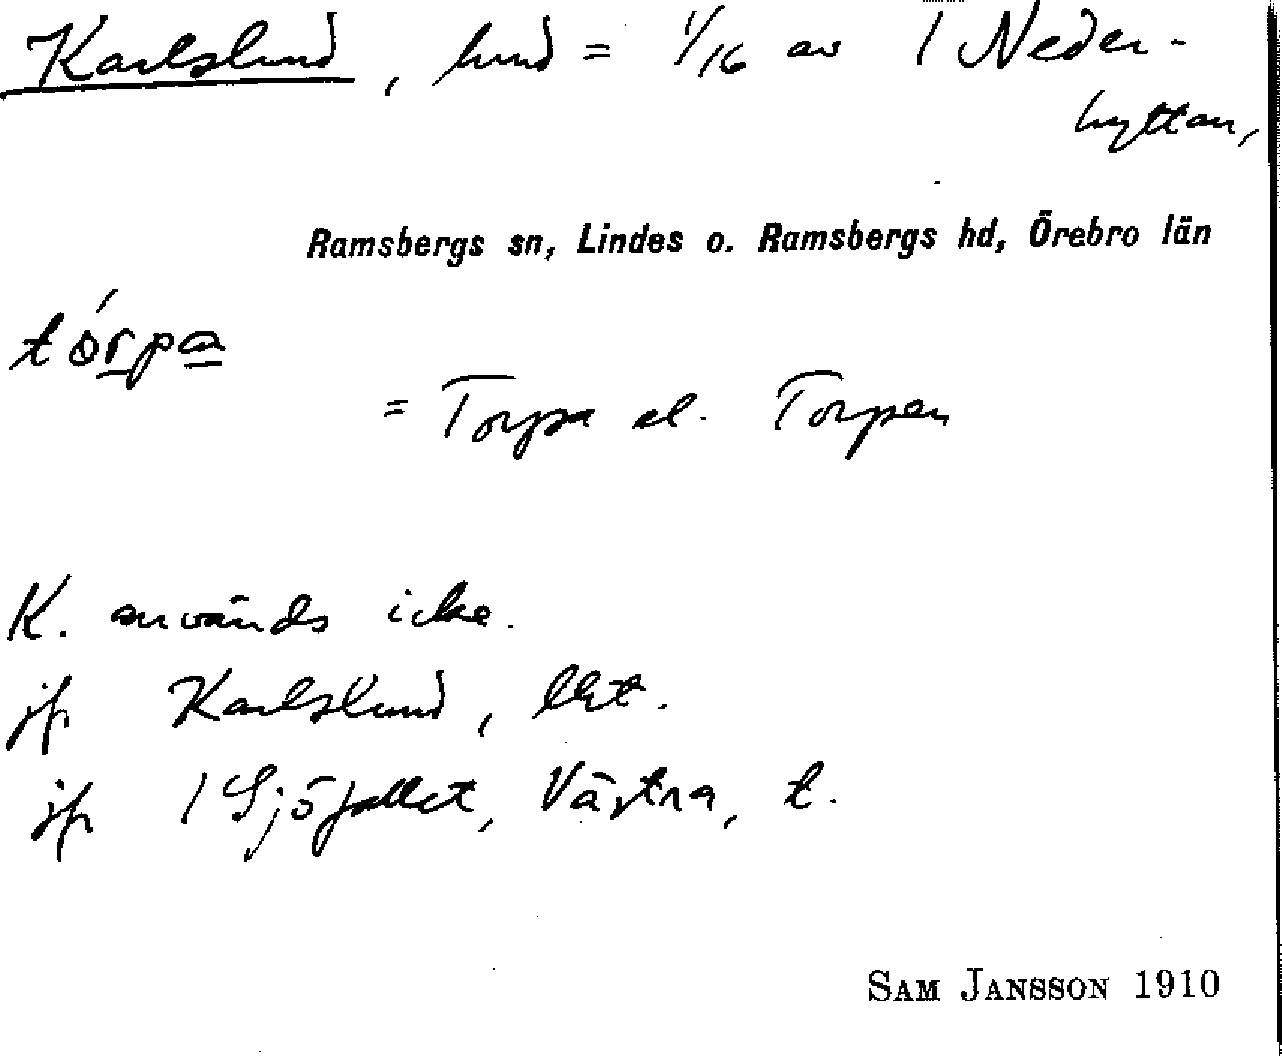 Karlslund, hmd = 1/16 av 1 Neder-
hyttan,
Ramsbergs sn, Lindes o. Ramsbergs hd, Örebro län
tórpa
= Torpa el. Torpen
K. används icke.
jfr Karlslund, lht.
jfr 1 Sjöfallet, Västra, t.
SAM JANSSON 1910